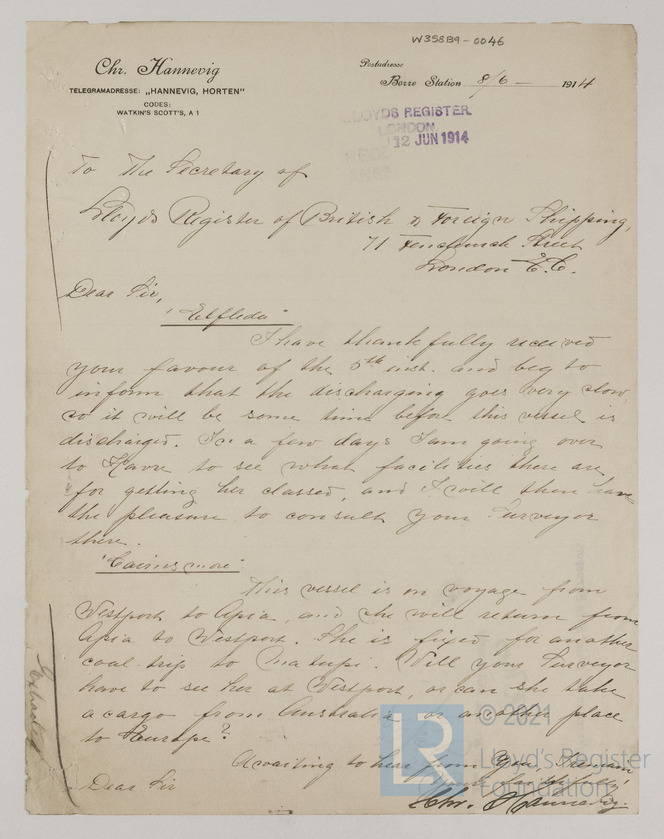 W358B9-0046
Chr. Hannevig
TELEGRAMADRESSE: „HANNEVIG, HORTEN"
CODES:
WATKIN'S SCOTT'S, A 1
Postadresse
Borre Station 8/6 — 1914
LLOYDS REGISTER
LONDON
12 JUN 1914
To The Secretary of
Lloyds Register of British & Foreign Shipping,
71 Fenchurch Street
London E.C.
Dear Sir,
"Elfleda"
I have thankfully received
your favour of the 5th inst. and beg to
inform that the discharging goes very slow,
so it will be some time before this vessel is
discharged. In a few days I am going over
to Havre to see what facilities there are
for getting her classed, and I will then have
the pleasure to consult your Surveyor
there.
"Cairnsmore"
This vessel is on voyage from
Westport to Apia, and she will return from
Apia to Westport. She is fixed for another
coal-trip to Matupi. Will your Surveyor
have to see her at Westport, or can she take
a cargo from Australia or another place
to Europe?
Awaiting to hear from you I remain,
Dear Sir
Yours faithfully
Chr. Hannevig.
Extracted
LR
© 2021
Lloyd's Register
Foundation